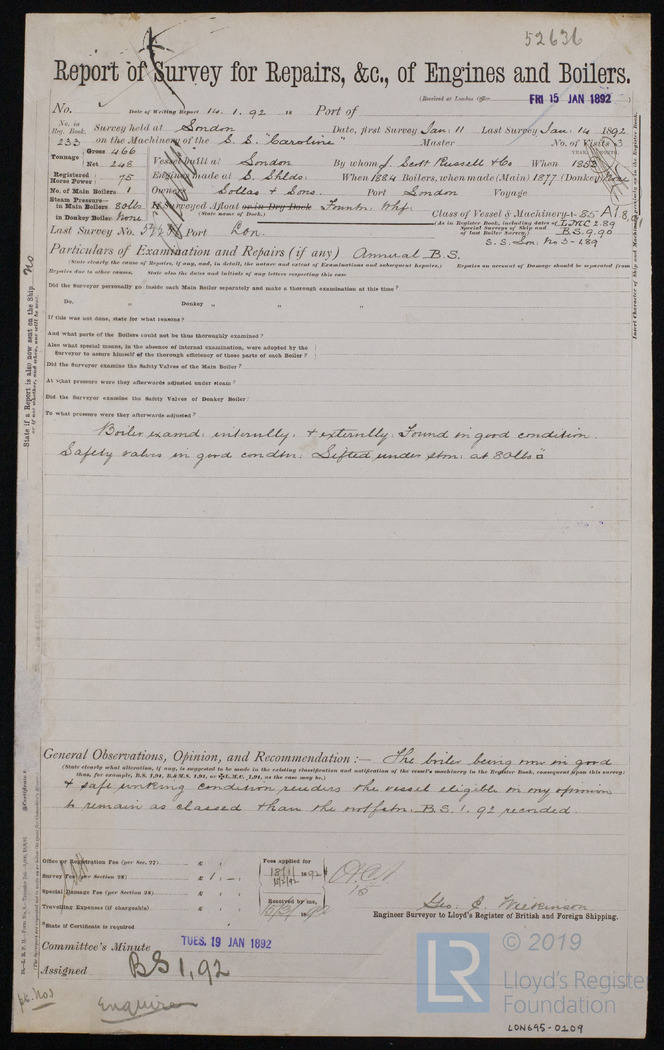 52636
Report of Survey for Repairs, &c., of Engines and Boilers.
(Received at London Office FRI 15 JAN 1892 )
No. Date of Writing Report 14. 1. 92 18 Port of
No. in Reg. Book. 233 Survey held at London Date, first Survey Jan: 11 Last Survey Jan: 14 1892
on the Machinery of the S. S. "Caroline" Master No. of Visits 3
Tonnage Gross 466 Net 248 Vessel built at London By whom J. Scott Russell & Co When 1852
Registered Horse Power 75 Engines made at S. Shlds. When 1884 Boilers, when made (Main) 1877 (Donkey) None
No. of Main Boilers 1 Owners Sollas & Sons. Port London Voyage
Steam Pressure in Main Boilers 80lbs If Surveyed Afloat or in Dry Dock Fountn. Whf.
(State name of Dock.)
in Donkey Boiler None Class of Vessel & Machinery
(As in Register Book, including dates of Special Surveys of Ship and of last Boiler Survey.)
LMC 2.89
B.S. 9.90
S. S. Lon: No 3-1.89
Last Survey No. Port Lon.
Particulars of Examination and Repairs (if any) Annual B.S.
(State clearly the cause of Repairs, if any, and, in detail, the nature and extent of Examinations and subsequent Repairs.) Repairs on account of Damage should be separated from
Repairs due to other causes. State also the dates and initials of any letters respecting this case
Did the Surveyor personally go inside each Main Boiler separately and make a thorough examination at this time?
Do. „ Donkey „ „ „
If this was not done, state for what reasons?
And what parts of the Boilers could not be thus thoroughly examined?
Also what special means, in the absence of internal examination, were adopted by the
Surveyor to assure himself of the thorough efficiency of those parts of each Boiler?
Did the Surveyor examine the Safety Valves of the Main Boiler?
At what pressure were they afterwards adjusted under steam?
Did the Surveyor examine the Safety Valves of Donkey Boiler?
To what pressure were they afterwards adjusted?
Boiler examd: internally. & externally. Found in good condition.
Safety valves in good condtn: Lifted under stm: at 80lbs □
General Observations, Opinion, and Recommendation :— The boiler being now in good
(State clearly what alteration, if any, is suggested to be made in the existing classification and notification of the vessel's machinery in the Register Book, consequent upon this survey:
thus, for example, B.S. 1,91, B.&M.S. 1,91, or ✠L.M.C. 1,91, as the case may be.)
& safe working condition renders the vessel eligible in my opinion
to remain as classed & have the notfctn: B.S. 1. 92 recorded.
Office or Registration Fee (per Sec. 27) £ : :
Survey Fee (per Section 28) £ 1 : - .
Special Damage Fee (per Section 28) £ : :
Travelling Expenses (if chargeable) £ : :
Fees applied for 18/1/1892
Received by me,
*State if Certificate is required
Geo. C. Wilkinson
Engineer Surveyor to Lloyd's Register of British and Foreign Shipping.
Committee's Minute TUES. 19 JAN 1892
Assigned BS 1,92
Enquire
State if a Report is also now sent on the Ship. No
or if not whether, and when, one will be sent.
LR
© 2019
Lloyd's Register
Foundation
LON695-0209